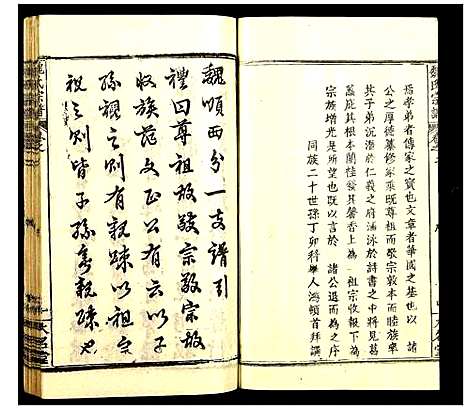 儒孝弟者傳家之寶也文章者華國之基也以
公之厚德纂修家乘既尊祖而敬宗敦本而睦族率
其子弟沉潛於仁義之府涵泳於詩書之中將見葛
藟庇其根本蘭桂發其馨香上為 祖宗收報下為
宗族增光是所望也既以言於 諸公退而為之序
同族二十世孫丁卯科舉人鴻頓首拜譔
魏順西分一支譜引
禮曰尊祖故敬宗敬宗故
收族范文正公有云以子
孫視之則有親疎以祖宗
視之則皆子孫無親疎也
魏氏宗譜